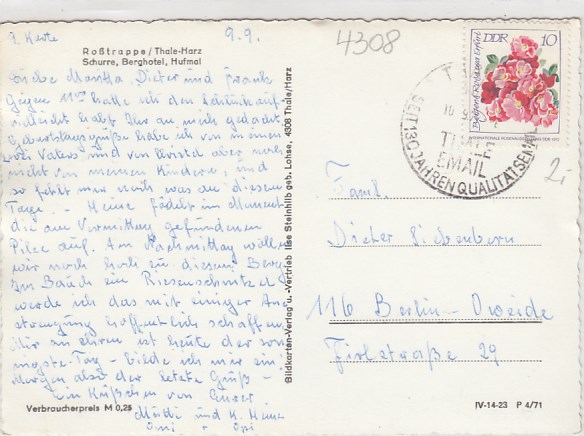 9. Karte
9.9.
4308
Roßtrappe / Thale-Harz
Schurre, Berghotel, Hufmal
Liebe Martha, Dieter und Frank
Gegen 11 Uhr hatte ich den
habt Ihr an mich gedacht
Geburtstagsgrüße habe ich von meinen
Vaters und von Christa aber noch
nicht von meinen Kindern, und
so fehlt mir noch was an diesem
Tage. - Heinz fädelt im Moment
die am Vormittag gefundenen
Pilze auf. Am Nachmittag wollen
wir noch hoch zu diesem Berg.
Im Bauch ein Riesenschnitzel
werde ich das mit einiger An-
strengung hoffentlich schaffen.
Mir zu ehren ist heute der son-
nigste Tag - bilde ich mir ein.
Morgen also der letzte Gruß -
Ein Küßchen von Eurer
Mutti und H. Heinz
Omi + Opi
Verbraucherpreis M 0,25
Bildkarten-Verlag u. -Vertrieb Ilse Steinhilb geb. Lohse, 4308 Thale/Harz
DDR 10
SEIT 130 JAHREN QUALITÄTSEMAIL
THALE
EMAIL
2,-
Faml.
Dieter Siebenborn
116 Berlin-
29
IV-14-23 P 4/71